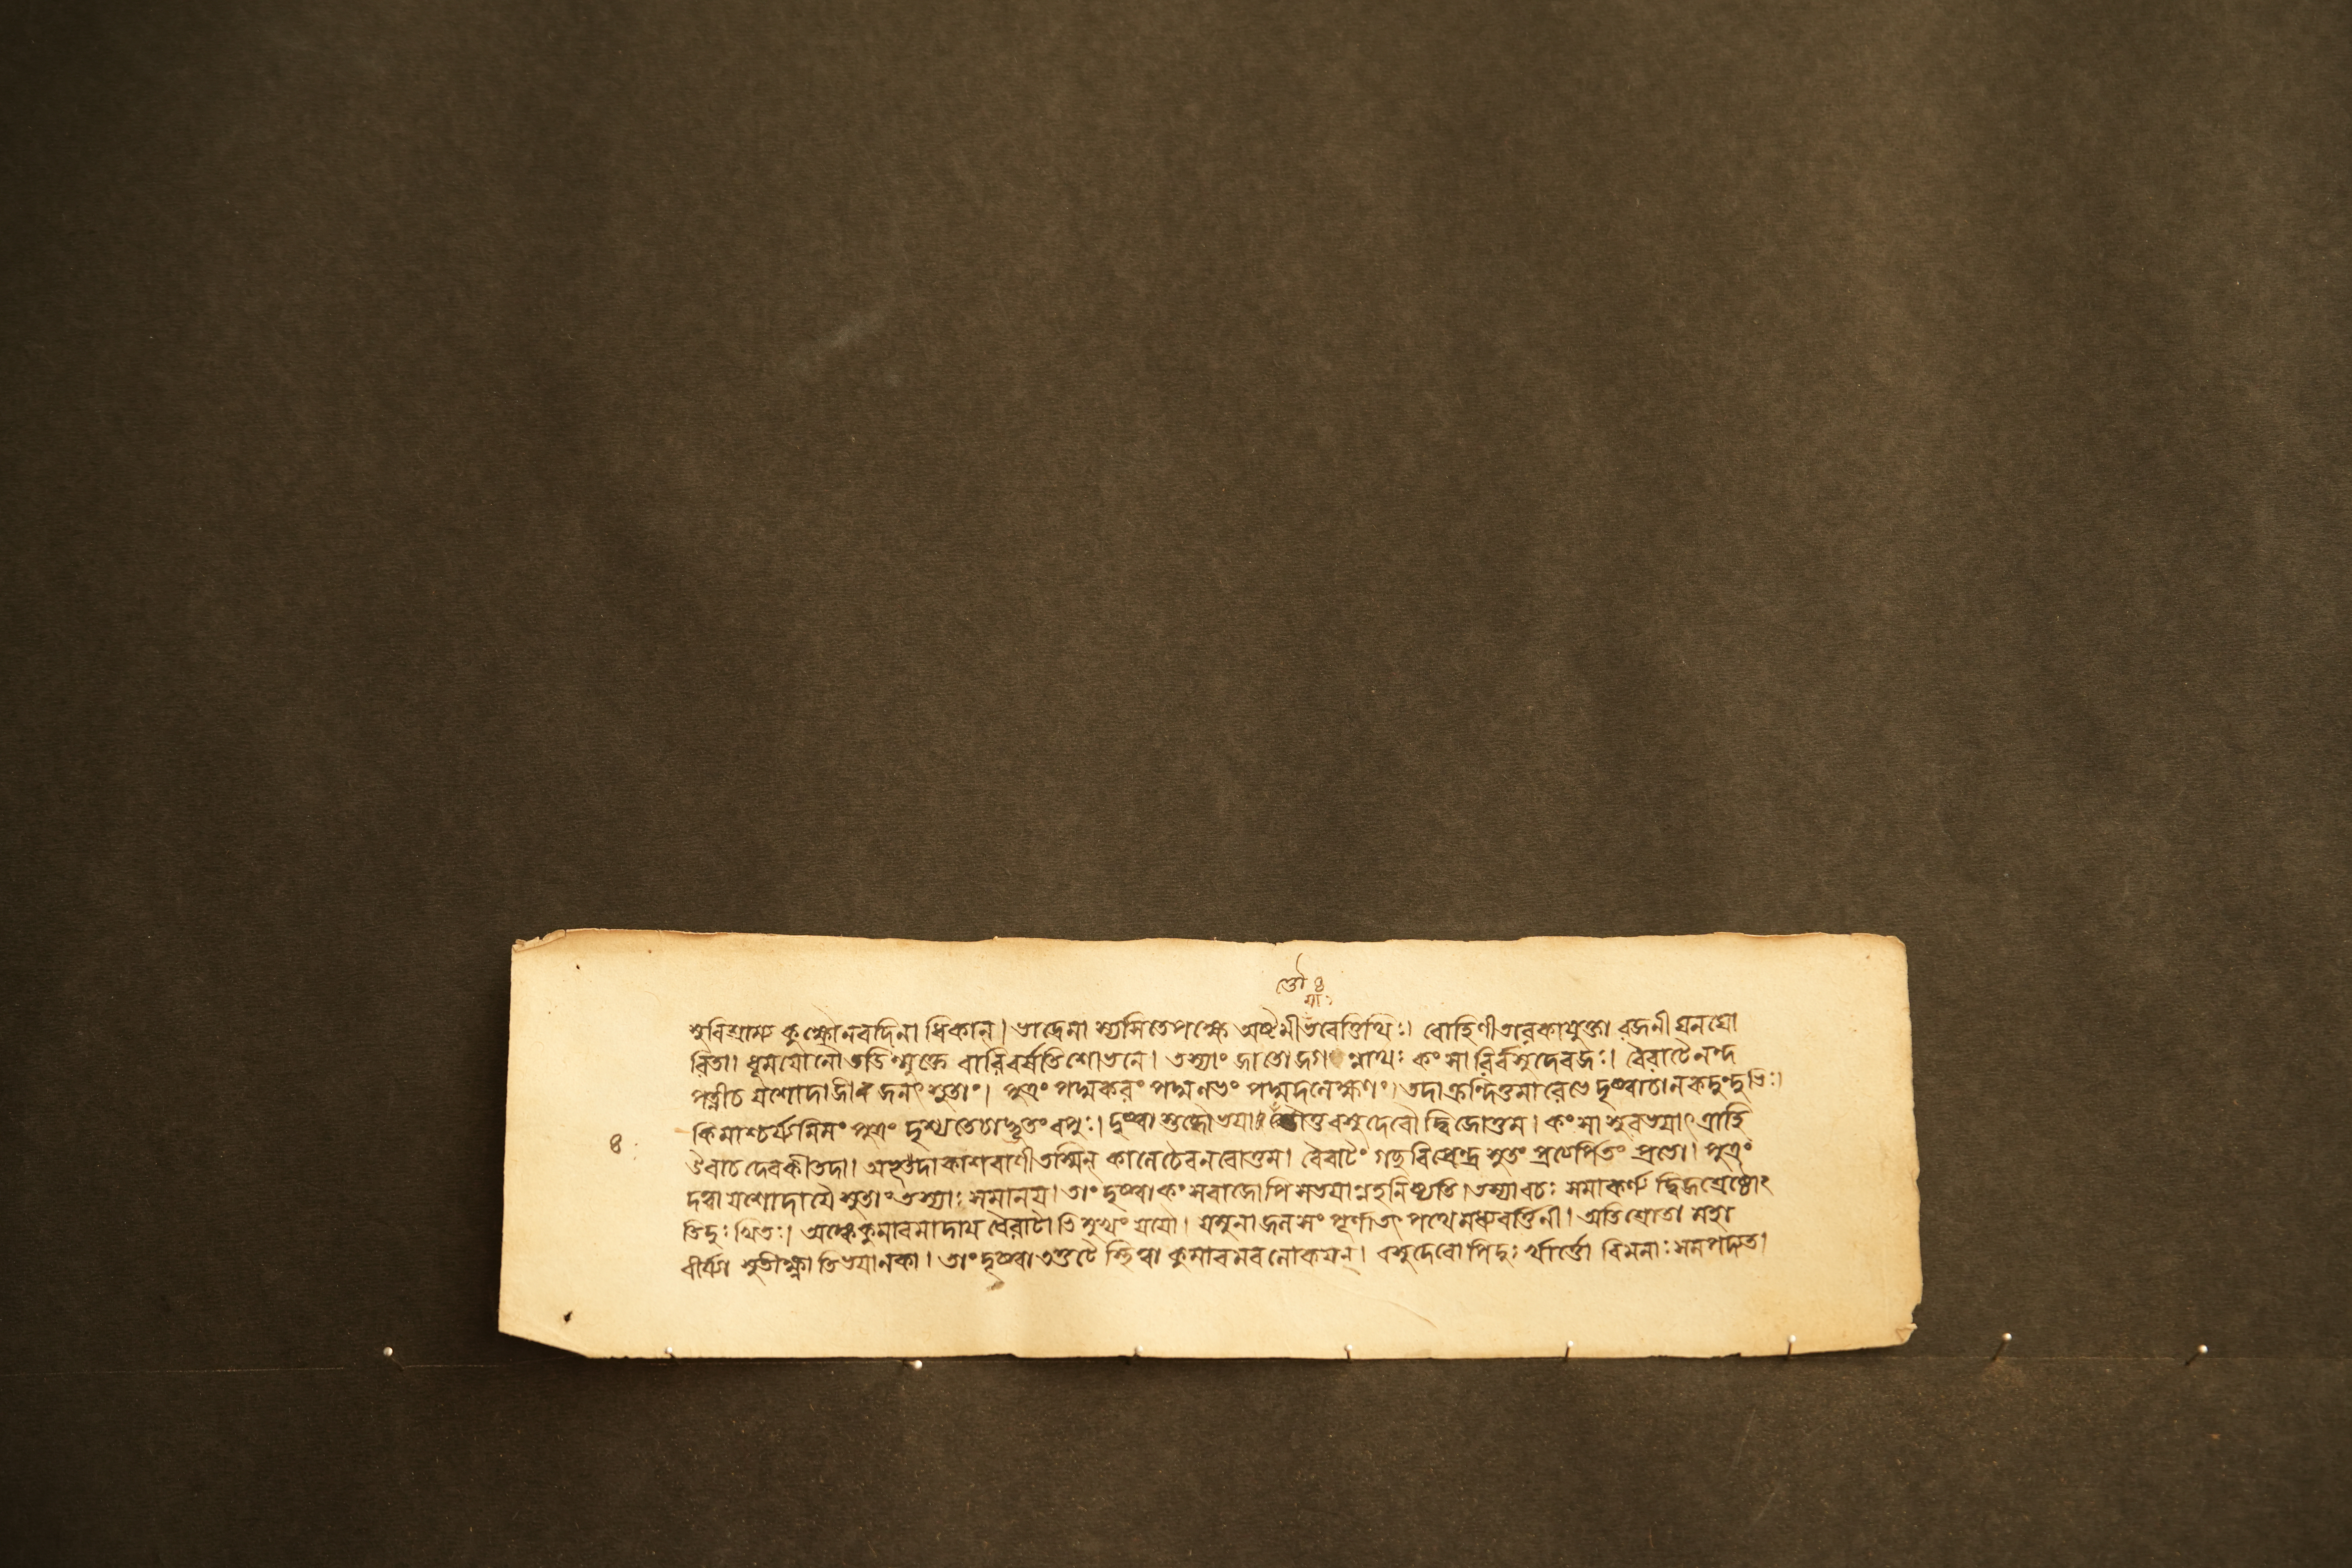 র্ত্তো ৪
মা
শুবিশ্রামঃ কুক্ষৌনবদিনা ধিকান্। ভাদ্রেমা স্যসিতেপক্ষে অষ্টমীভবেত্তিথিঃ। রোহিণীতারকাযুক্তা রজনীঘনঘো
রিতা। ধূমযোনৌতডিন্মুক্তে বারিবর্ষতিশোভনে। তস্যাং জাতোজগ ন্নাথঃ কং সা রির্বসুদেবজঃ। বৈরাটেনন্দ
পত্নীচ যশোদাজীব জনৎ সুতাং। পুত্রং পদ্মকরং পদ্মনাভং পদ্মদলেক্ষণং। তদাক্রন্দিতুমারেভে দৃষ্ট্বাচানকদুংদুভিঃ।
কিমাশ্চর্য্যমিমং পুত্রং দৃশ্যতেচাদ্ভুতংবপুঃ। দৃষ্ট্বা বসুদেবৌ দ্বিজোত্তম। কং সা সুরভয়াৎ ত্রাহি
উবাচদেবকীতদা। অভূতদাকাশবাণীতস্মিন্ কালেচৈবনরোত্তম। বৈরাটং গচ্ছবিপ্রেন্দ্র সুতং প্রভো। পুত্রং
দত্ত্বাযশোদায়ৈ সুতাং তস্যাঃ সমানয়। তাং দৃষ্ট্বাকং সরাজোপি সভয়ান্নহনিষ্যতি। তস্যাবচঃ সমাকর্ণ্য দ্বিজশ্রেষ্ঠোং
তিদুঃখিতঃ। অঙ্কেকুমারমাদায় বৈরাটা ভিমুখং যযৌ। যমুনাজলসং পূর্ণাতৎ পথেমধ্যবর্ত্তিনী। অতিশ্রোতা মহা
বীর্য্যা সুতীক্ষ্ণাতিভয়ানকা। তাং দৃষ্ট্বাতত্তটেস্থিত্বা কুমারমবলোকয়ন্। বসুদেবোপিদুঃ খার্ত্তো বিমনাঃসমপদ্যত।
৪